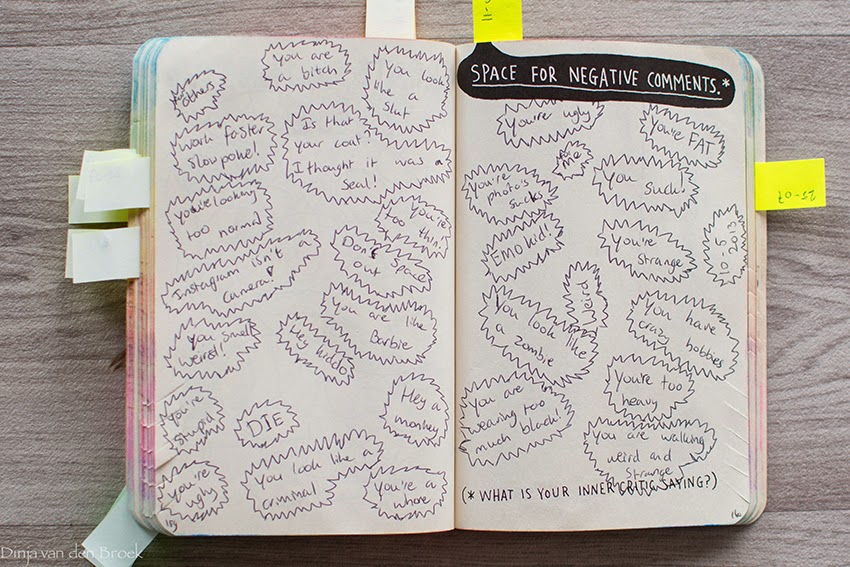 others
You are
a bitch
You look
like a
slut
Work faster
slowpoke!
Is that
your coat?
I thought it was a
seal!
You're looking
too normal
You're
too thin
Don't space
out
Instagram isn't a
camera!
You are like
Barbie
You smell
weird!
Hey kiddo
You're
stupid
DIE
Hey a
monkey
You're
ugly
You look like a
criminal
You're a
whore
SPACE FOR NEGATIVE COMMENTS.*
You're ugly
You're FAT
me
You're
photo's
sucks
You
suck!
EMO kid!
You're
strange
10-5
2013
weird
You look like
a zombie
You have
crazy hobbies
You're too
heavy
You are
wearing too
much black!
You are walking
weird and
strange
(* WHAT IS YOUR INNER CRITIC SAYING?)
25-07
Dinja van den Broek